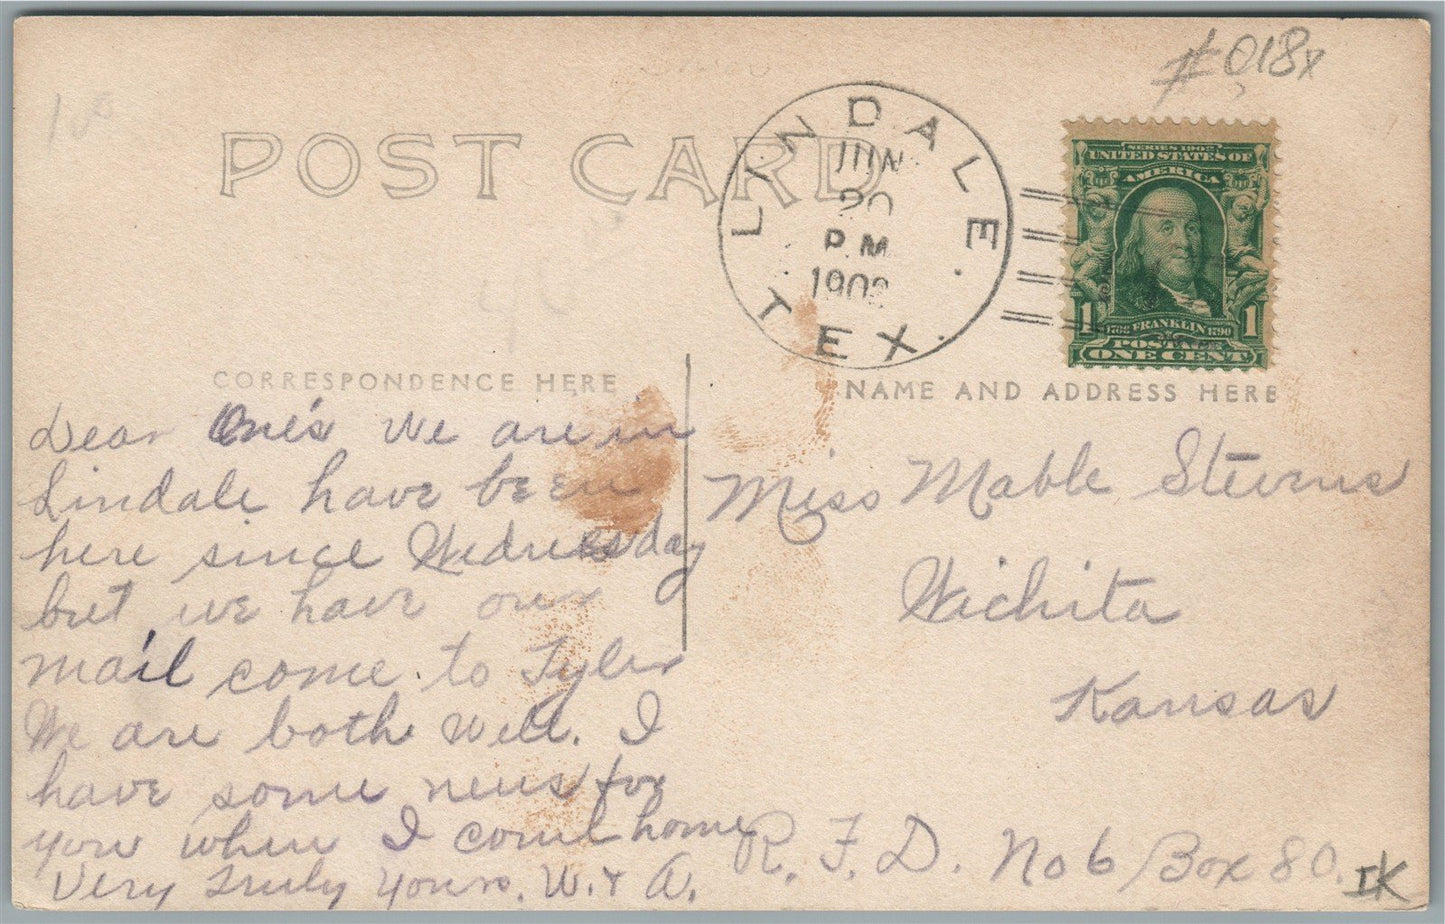 #018x
POST CARD
LINDALE
JUN
20
P.M.
190
TEX.
SERIES 1902
UNITED STATES OF
AMERICA
1 1782 FRANKLIN 1790 1
POSTAGE
ONE CENT
CORRESPONDENCE HERE
NAME AND ADDRESS HERE
Dear One's We are in
Lindale have been
here since Wednesday
but we have our
mail come to Tyler
We are both well. I
have some news for
you when I come home
Very Truly Yours. W. & A.
Miss Mable Stevens
Wichita
Kansas
R. F. D. No 6 Box 80.
IK